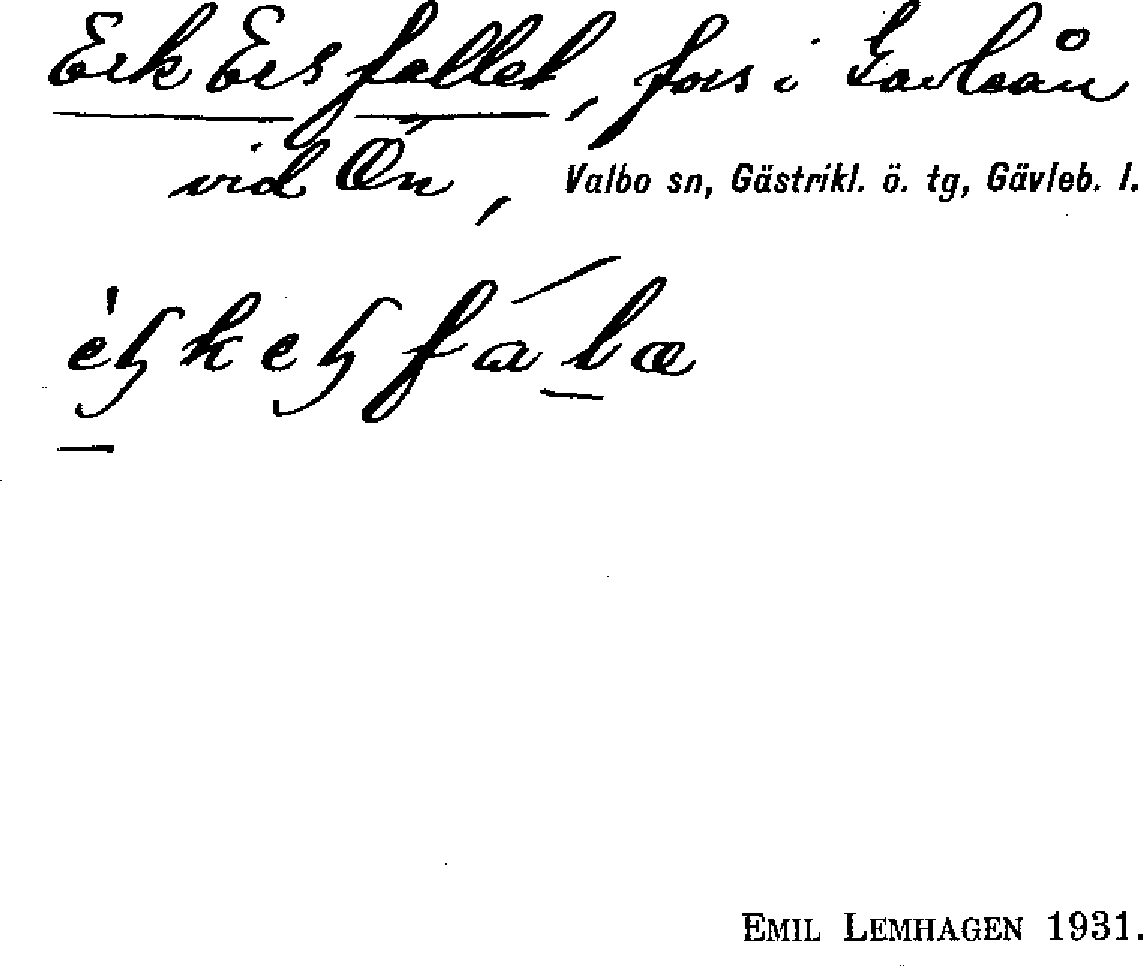 Erk Ersfallet, fors i Gavleån
vid Ön, Valbo sn, Gästrikl. ö. tg, Gävleb. l.
EMIL LEMHAGEN 1931.